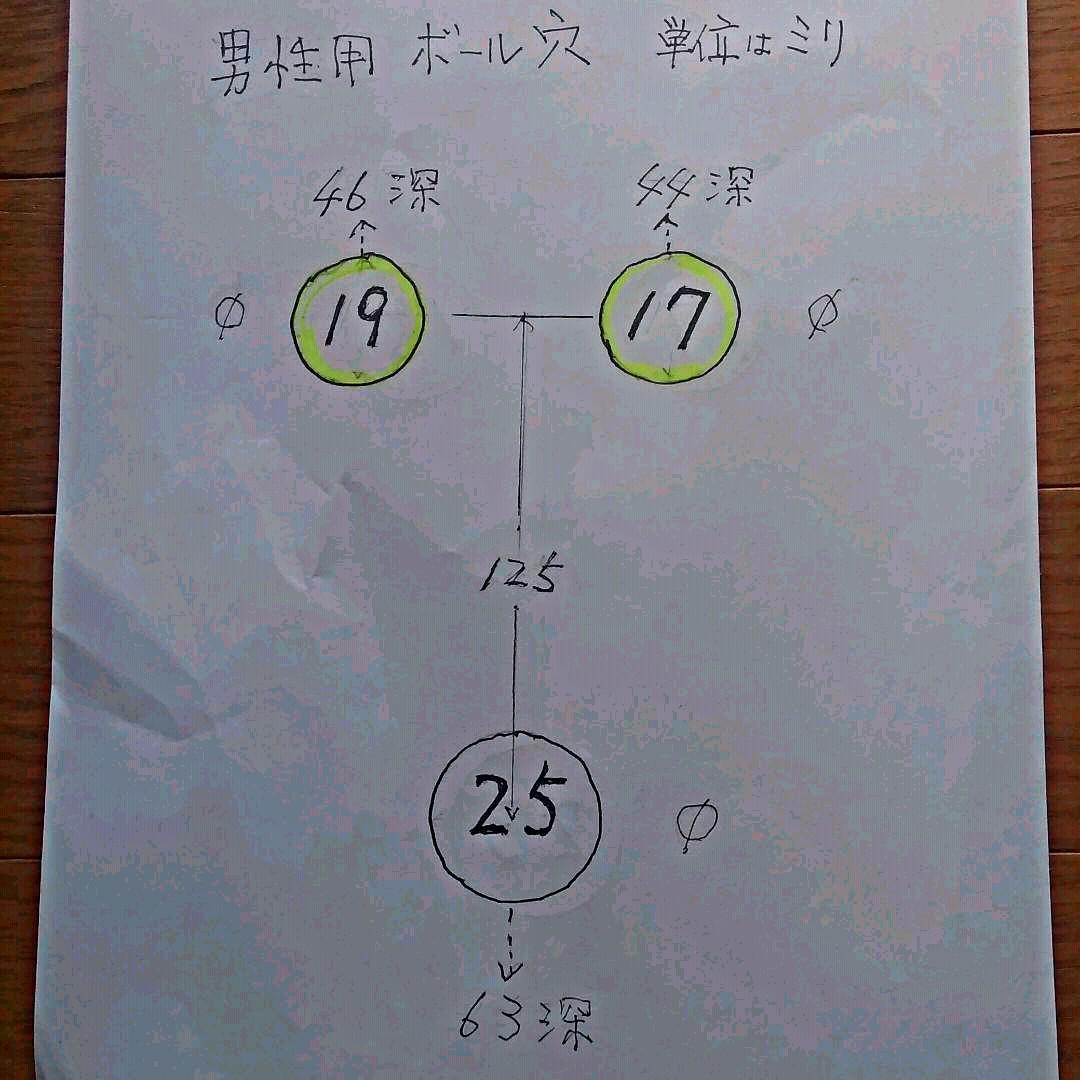 男性用 ボール穴 単位はミリ
46深 44深
φ 19 17 φ
125
25 φ
63深